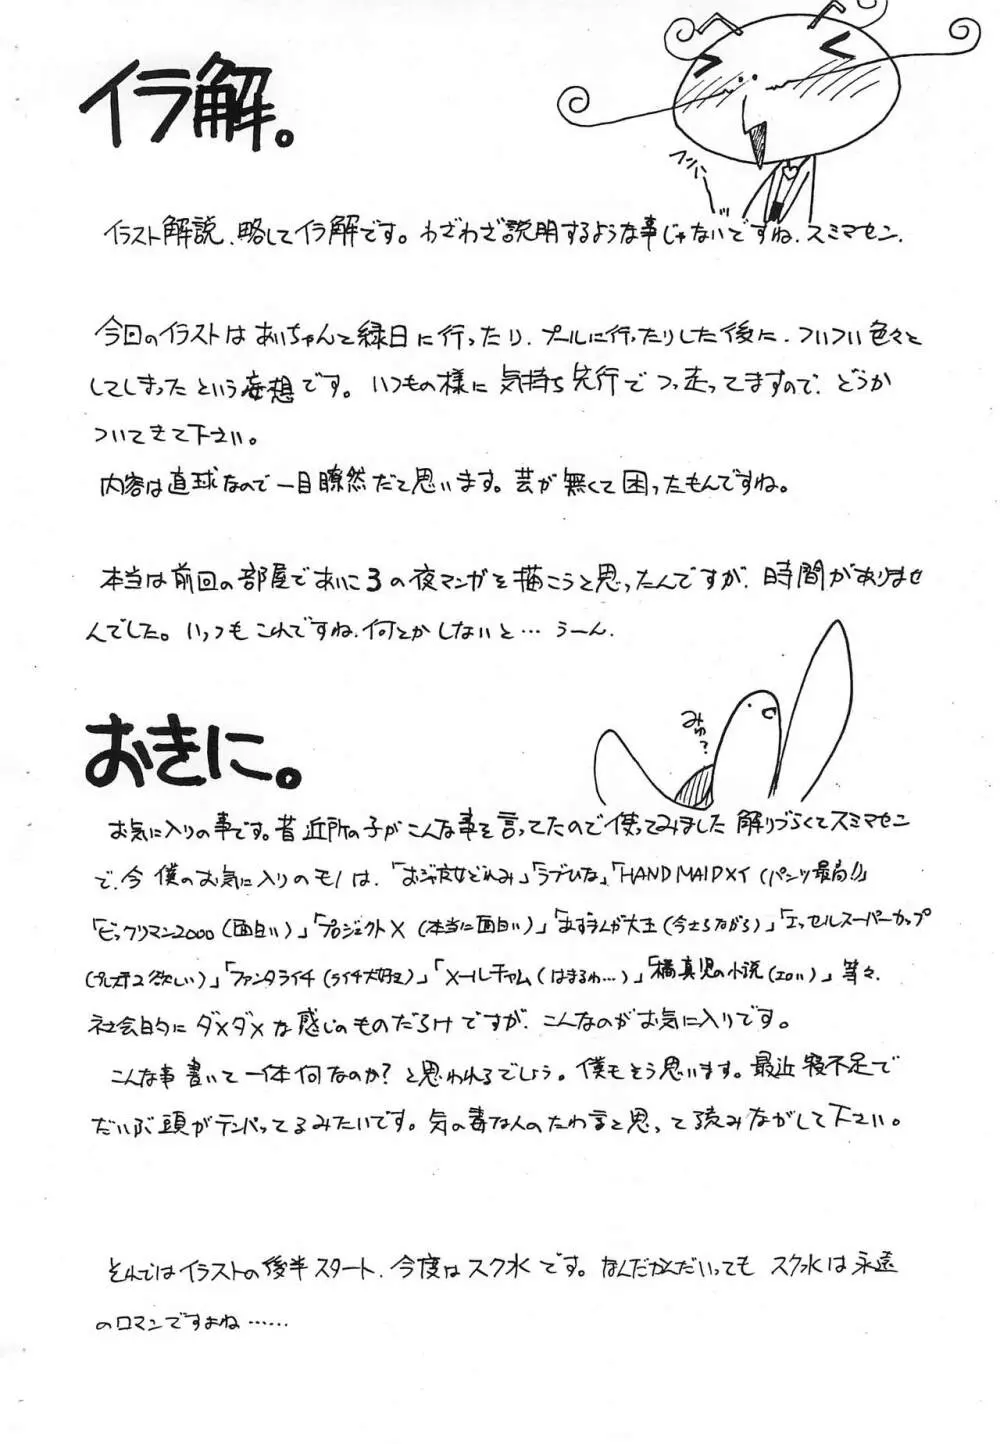 イラ解。
イラスト解説、略してイラ解です。わざわざ説明するような事じゃないですね、スミマセン、
今回のイラストはあいちゃんと縁日に行ったり、プールに行ったりした後に、ついつい色々と
してしまったという妄想です。いつもの様に気持ち先行でつっ走ってますので、どうか
ついてきて下さい。
内容は直球なので一目瞭然だと思います。芸が無くて困ったもんですね。
本当は前回の部屋であいこ3の夜マンガを描こうと思ったんですが、時間がありませ
んでした。いっつもこれですね、何とかしないと…うーん、
みゅ?
おきに。
お気に入りの事です。昔近所の子がこんな事を言ってたので使ってみました 解りづらくてスミマセン
で、今僕のお気に入りのモノは、「おジャ魔女どれみ」「ラブひな」「HAND MAIDメイ(パンツ最高!!)」
「ビックリマン2000(面白い)」「プロジェクトX(本当に面白い)」「あずまんが大王(今さらながら)」「エッセルスーパーカップ
(プレステ2欲しい)」「ファンタライチ(ライチ大好き)」「メールチャム(はまるわ…)」「橘真児の小説(エロい)」等々、
社会的にダメダメな感じのものだらけですが、こんなのがお気に入りです。
こんな事書いて一体何なのか?と思われるでしょう。僕もそう思います。最近寝不足で
だいぶ頭がテンパってるみたいです。気の毒な人のたわ言と思って読みながして下さい。
それではイラストの後半スタート、今度はスク水です。なんだかんだいっても スク水は永遠
のロマンですよね……